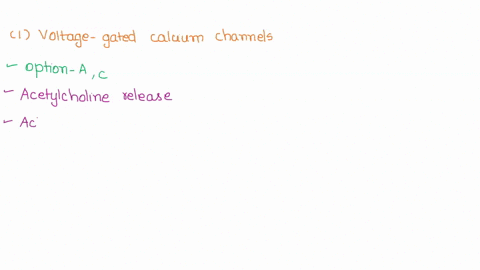 (1) Voltage-gated calcium channels
- option-A, C
- Acetylcholine release
- Ac